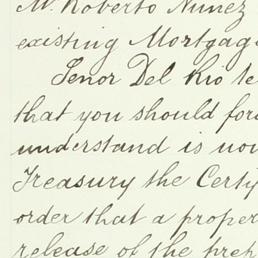 Mr. Roberto Nunez
existing Mortgag
Senor Del Rio le
that you should for
understand is now
Treasury the Certi
order that a proper
release of the prep